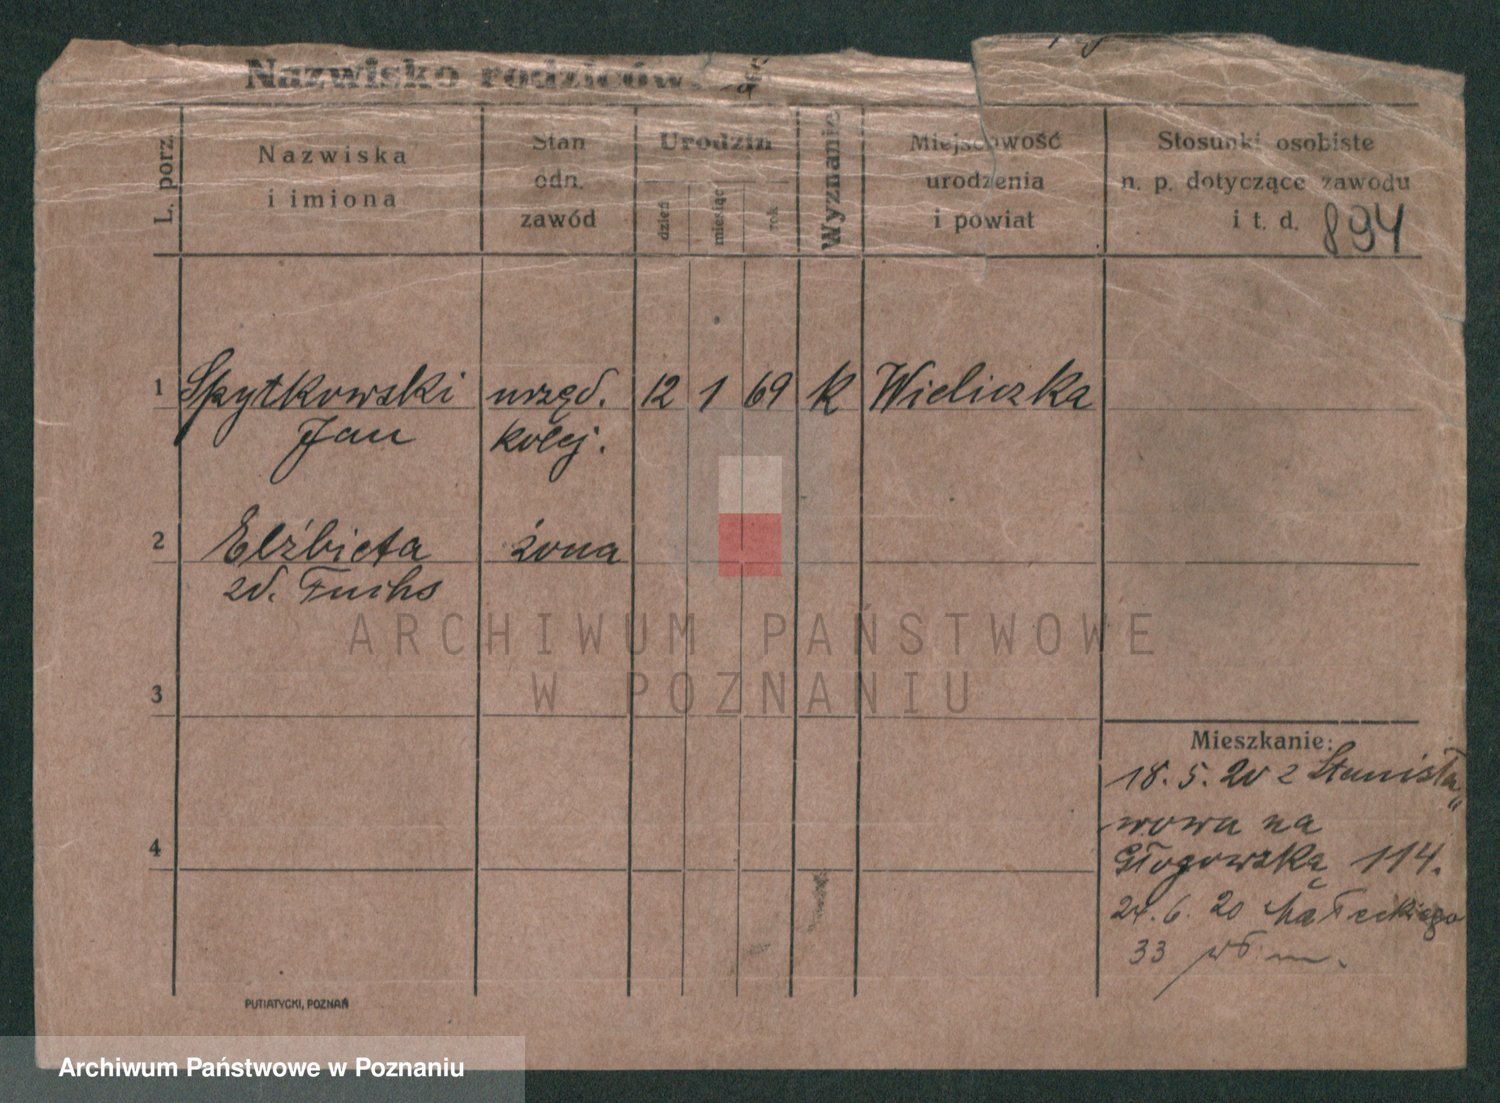 Nazwisko rodziców
L. porz.
Nazwiska
i imiona
Stan
odn.
zawód
Urodzin
dzień
miesiąc
rok
Wyznanie
Miejscowość
urodzenia
i powiat
Stosunki osobiste
n. p. dotyczące zawodu
i t. d.
894
1 Spytkowski urzęd. 12 1 69 k Wieliczka
Jan kolej.
2 Elżbieta żona
zd. Fuchs
3
4
Mieszkanie:
18.5.20 z Stanisła„
wowa na
Głogowską 114.
24.6.20 Małeckiego
33
PUTIATYCKI, POZNAŃ
ARCHIWUM PAŃSTWOWE
W POZNANIU
Archiwum Państwowe w Poznaniu